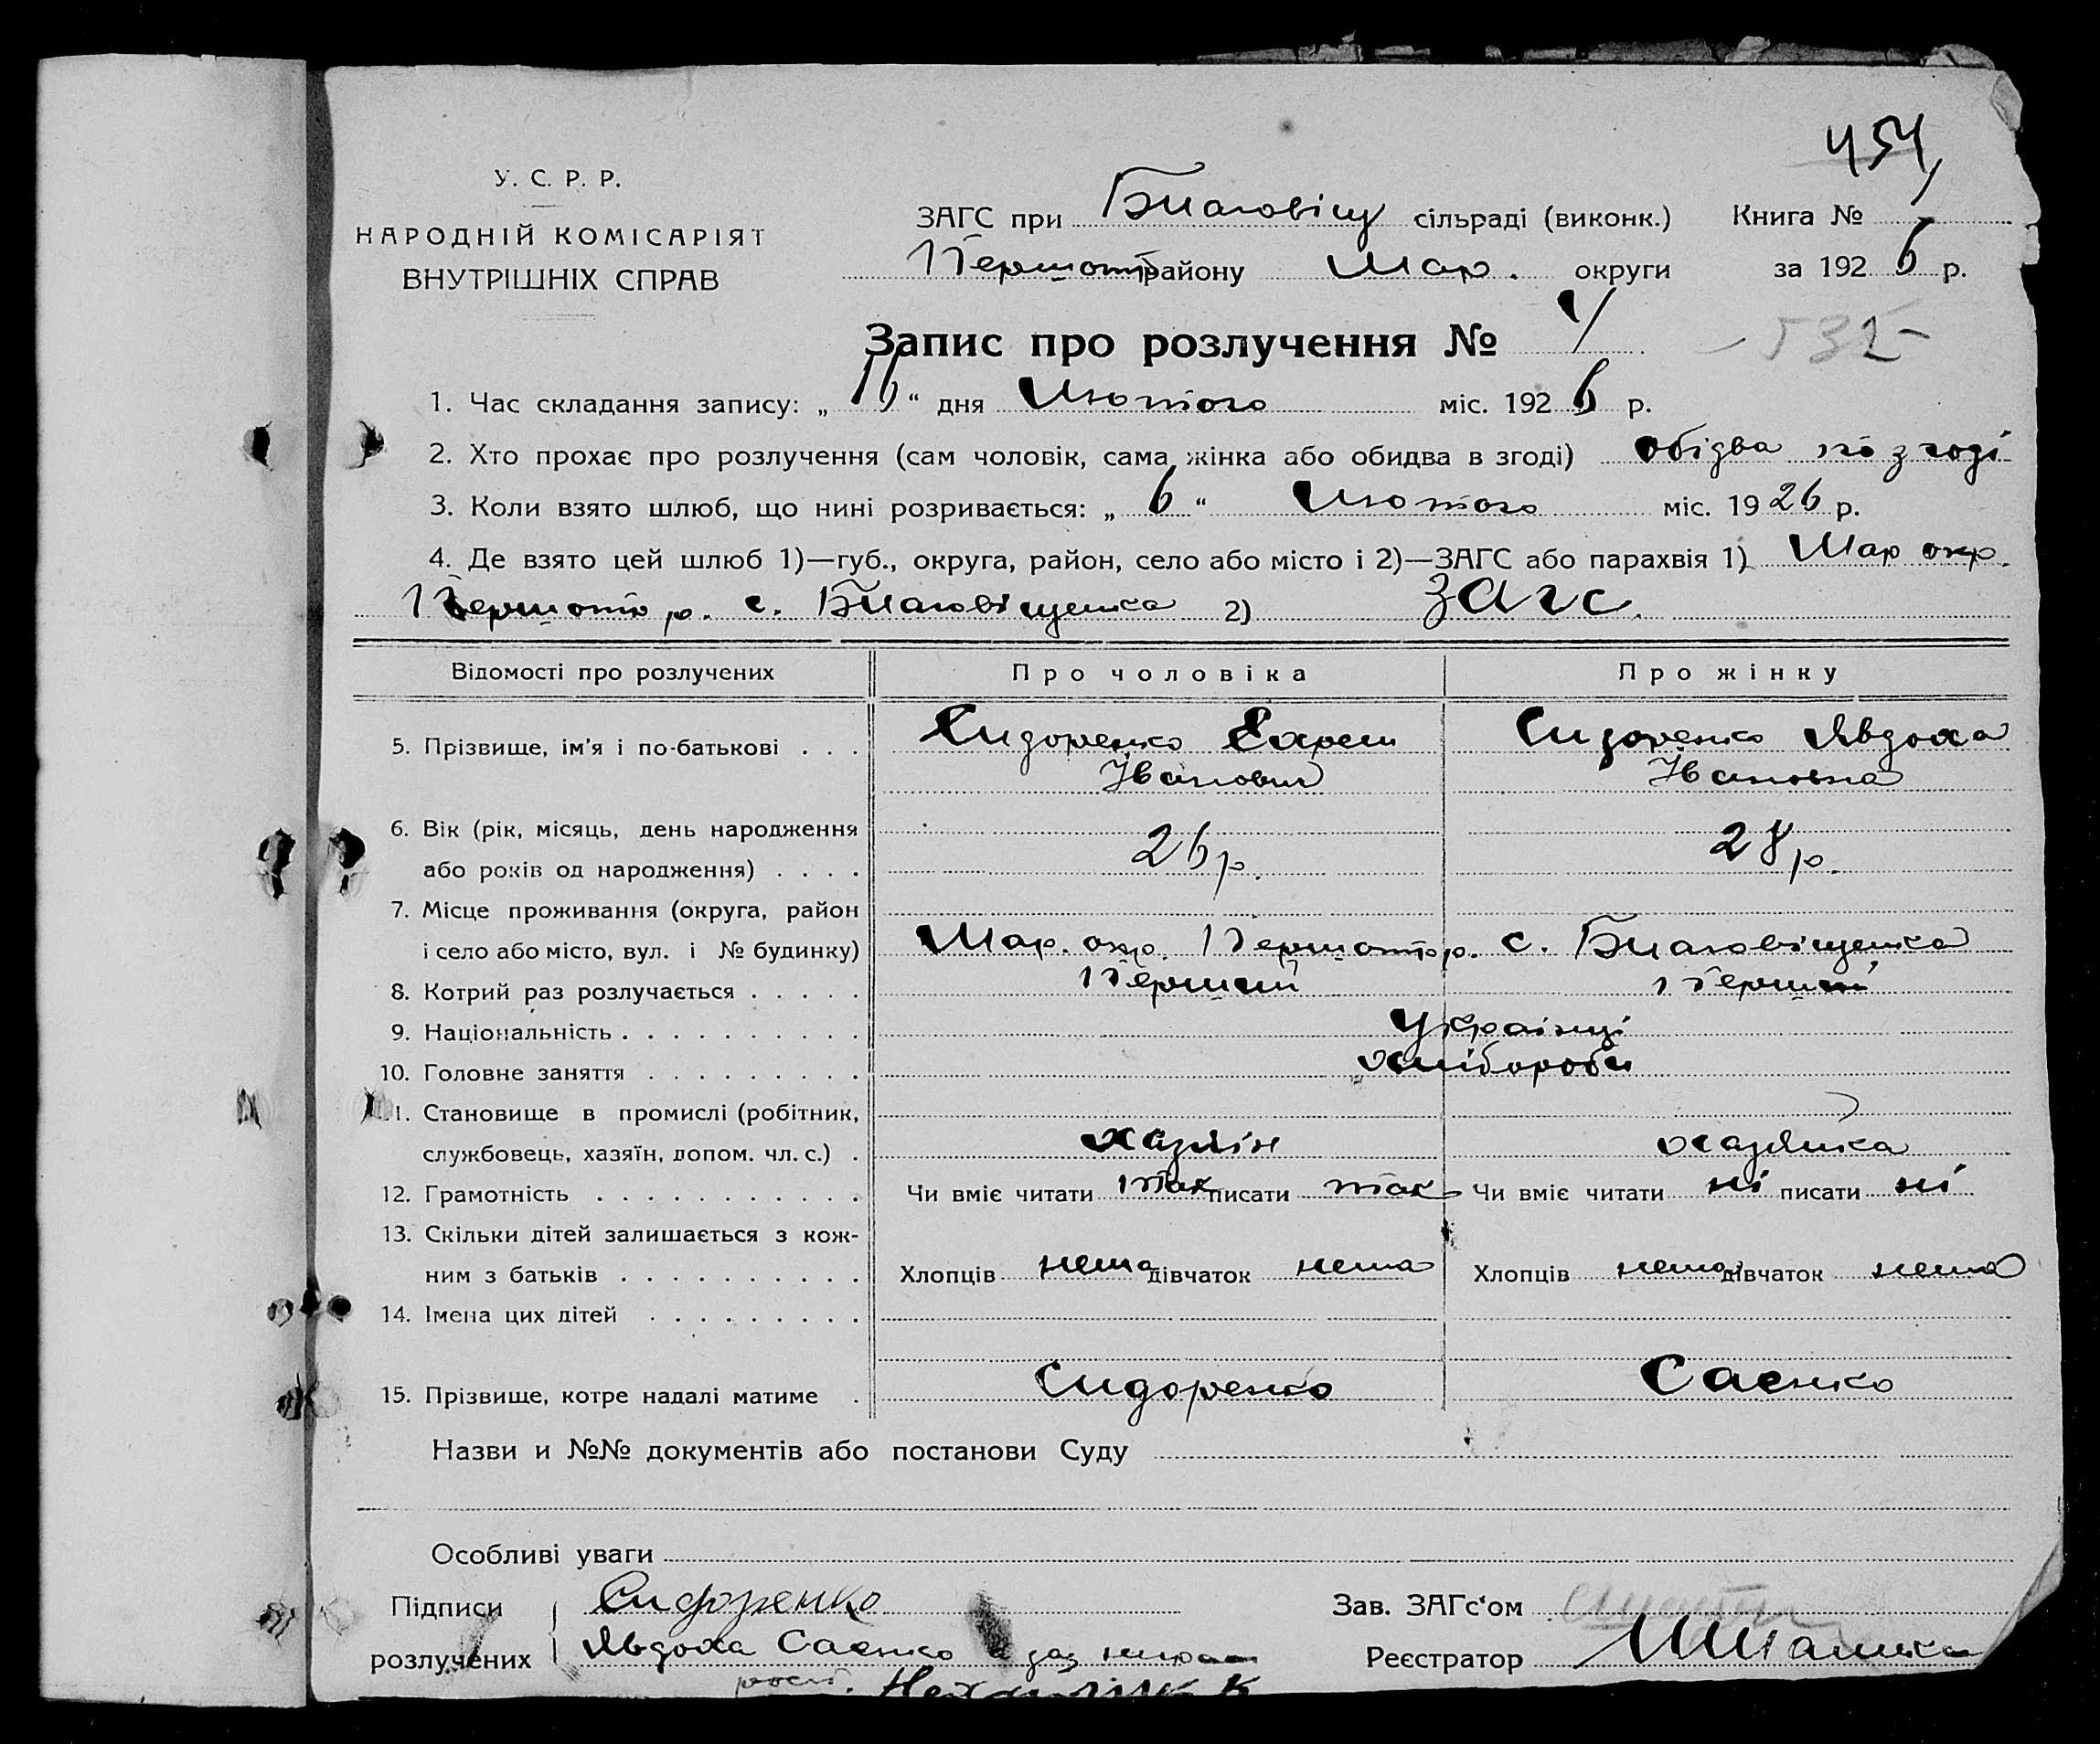 454
У. С. Р. Р.
НАРОДНІЙ КОМІСАРІЯТ
ВНУТРІШНІХ СПРАВ
ЗАГС при Благовіщ сільраді (виконк.) Книга №
Першотр району Мар. округи за 1926 р.
Запис про розлучення № 4
532
1. Час складання запису: „16“ дня Лютого міс. 1926 р.
2. Хто прохає про розлучення (сам чоловік, сама жінка або обидва в згоді) обідва по згоді
3. Коли взято шлюб, що нині розривається: „6“ Лютого міс. 1926 р.
4. Де взято цей шлюб 1)—губ., округа, район, село або місто і 2)—ЗАГС або парахвія 1) Мар окр.
Першотр р. с. Благовіщенка 2) Загс.
Відомості про розлучених Про чоловіка Про жінку
5. Прізвище, ім'я і по-батькові . . . Сидоренко Сидоренко Явдоха
Іванович Івановна
6. Вік (рік, місяць, день народження
або років од народження) . . . . 26 р. 28 р.
7. Місце проживання (округа, район
і село або місто, вул. і № будинку) Мар. окр. Першотр р. с. Благовіщенка
8. Котрий раз розлучається . . . . . Перший Перший
9. Національність . . . . . . . . . . Українці
10. Головне заняття . . . . . . . . . хлібороби
11. Становище в промислі (робітник,
службовець, хазяїн, допом. чл. с.) . хазяїн хазяйка
12. Грамотність . . . . . . . . . . . Чи вміє читати так писати так Чи вміє читати ні писати ні
13. Скільки дітей залишається з кож-
ним з батьків . . . . . . . . . . Хлопців нема дівчаток нема Хлопців нема дівчаток нема
14. Імена цих дітей . . . . . . . . .
15. Прізвище, котре надалі матиме . Сидоренко Саенко
Назви и №№ документів або постанови Суду
Особливі уваги
Підписи Сидоренко Зав. ЗАГс‘ом
розлучених Явдоха Саенко а за Реєстратор